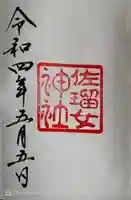 佐瑠女
神社
令和四年五月五日